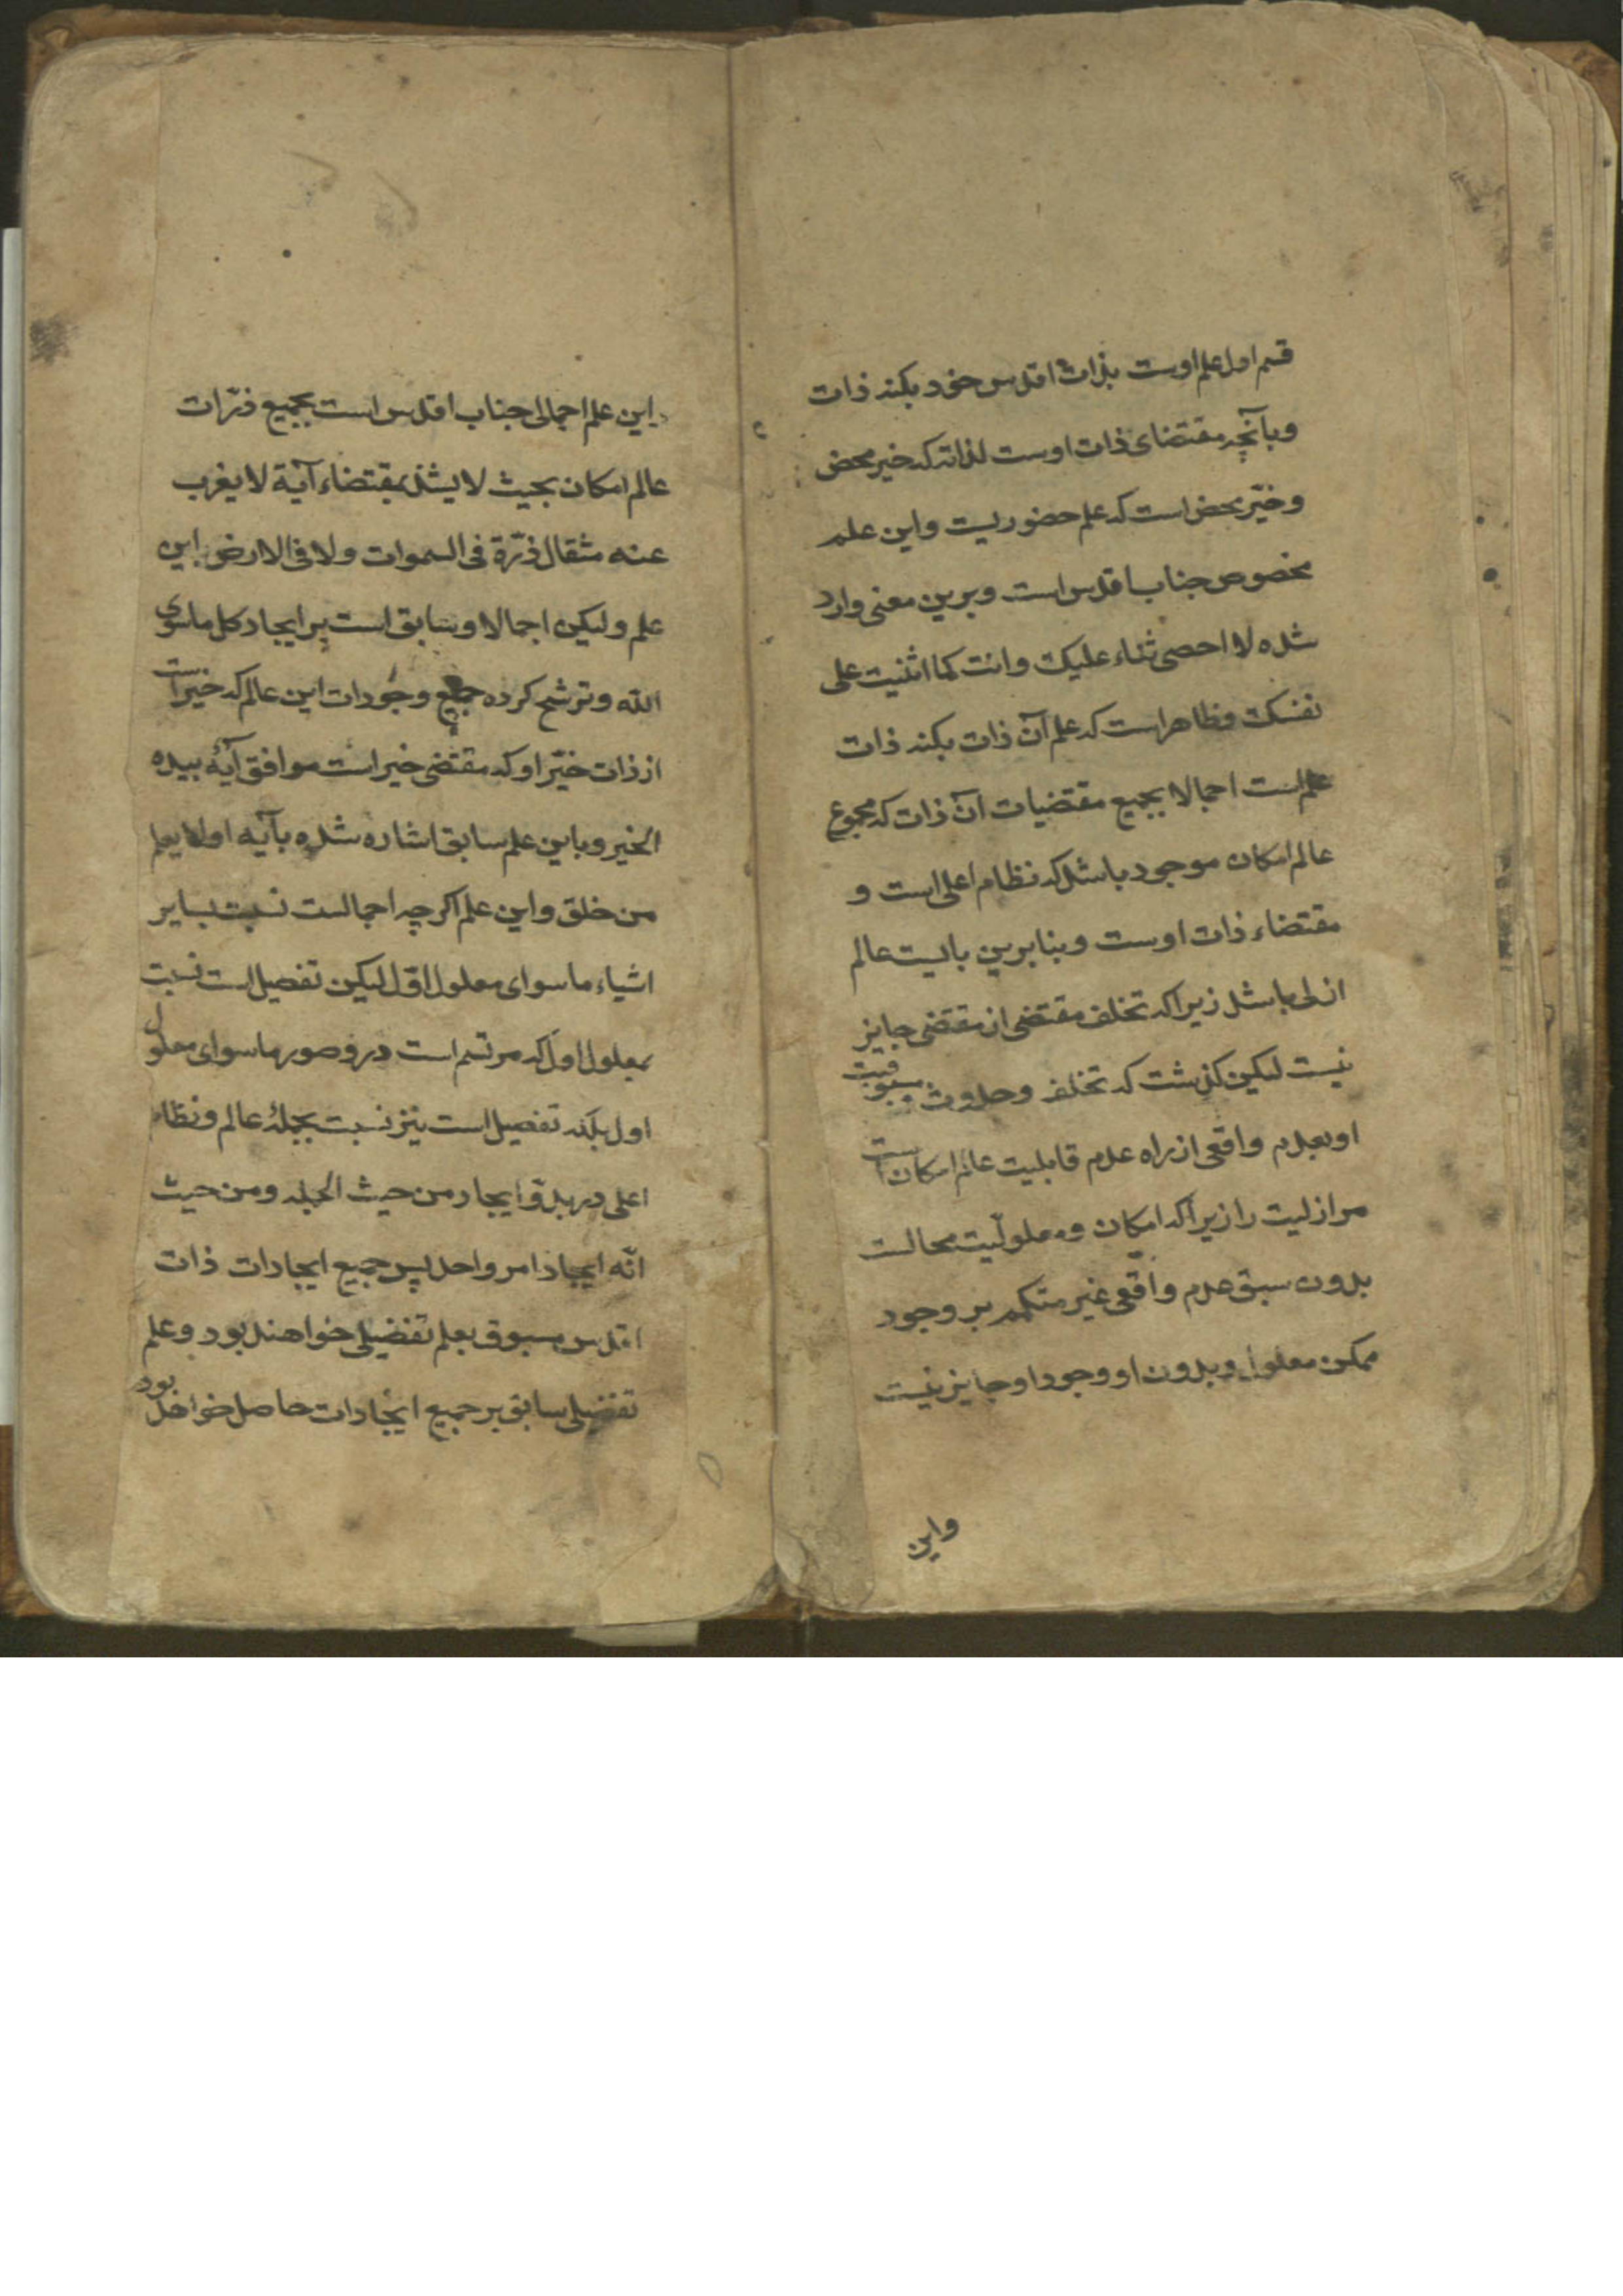 قسم اول علم اوست بذات اقدس خود بکنه ذات
و بآنچه مقتضای ذات اوست لذاته که خیر محض
و خیّر محض است که علم حضوریست و این علم
مخصوص جناب اقدس است و برین معنی وارد
شده لا احصی ثناء علیک و انت کما اثنیت علی
نفسک و ظاهر است که علم آن ذات بکنه ذات
علم است اجمالا بجمیع مقتضیات آن ذات که مجموع
عالم امکان موجود باشد که نظام اعلی است و
مقتضاء ذات اوست و بنابرین بایست عالم
ازلی باشد زیرا که تخلف مقتضی از مقتضی جایز
نیست لیکن گذشت که تخلف و حدوث مسبوقیت
او بعدم واقعی از راه عدم قابلیت عالم امکان است
مر ازلیت را زیرا که امکان و معلولیّت محالست
بدون سبق عدم واقعی غیر متکمم بر وجود
ممکن معلول و بدون او وجود او جایز نیست
واین
این علم اجمالی جناب اقدس است بجمیع ذرّات
عالم امکان بحیث لا یشذ بمقتضاء آیة لا یغرب
عنه مثقال ذرّة فی السموات و لا فی الارض این
علم ولیکن اجمالا و سابق است بر ایجاد کل ماسوی
الله و ترشح کرده جمیع وجودات این عالم که خیر است
از ذات خیّر او که مقتضی خیر است موافق آیهٔ بیده
الخیر و باین علم سابق اشاره شده بآیه اولا یعلم
من خلق و این علم اگرچه اجمالست نسبت بسایر
اشیاء ماسوای معلول اوّل لیکن تفصیل است نسبت
بمعلول اوّل که مرتسم است درو صور ماسوای معلول
اول بلکه تفصیل است نیز نسبت بجملهٔ عالم و نظام
اعلی در بدو ایجاد من حیث الجمله و من حیث
انّه ایجاد امر واحد پس جمیع ایجادات ذات
اقدس مسبوق بعلم تفضیلی خواهند بود و علم
تفضیلی سابق بر جمیع ایجادات حاصل خواهد بود